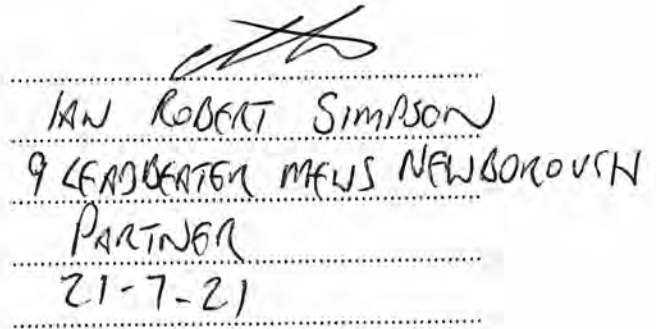 IAN ROBERT SIMPSON
9 LEADBEATER MEWS NEWBOROUGH
PARTNER
21-7-21